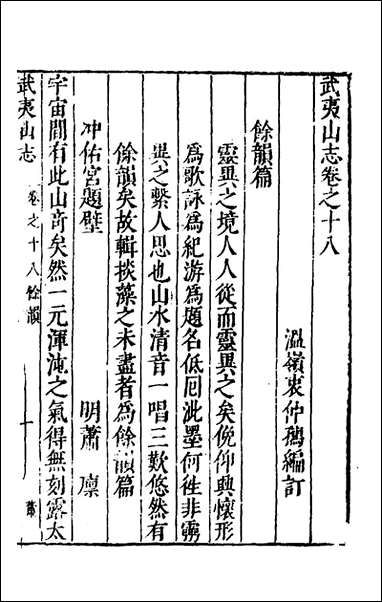 武夷山志卷之十八
溫嶺衷仲孺編訂
餘韻篇
靈異之境人人從而靈異之矣俛仰興懷形
為歌詠為紀游為題名低回泚墨何徃非靈
異之繫人思也山水清音一唱三歎悠然有
餘韻矣故輯掞藻之未盡者為餘韻篇
冲佑宮題壁
明蕭凛
宇宙間有此山奇矣然一元渾沌之氣得無刻露太
武夷山志
卷之十八餘韻
一